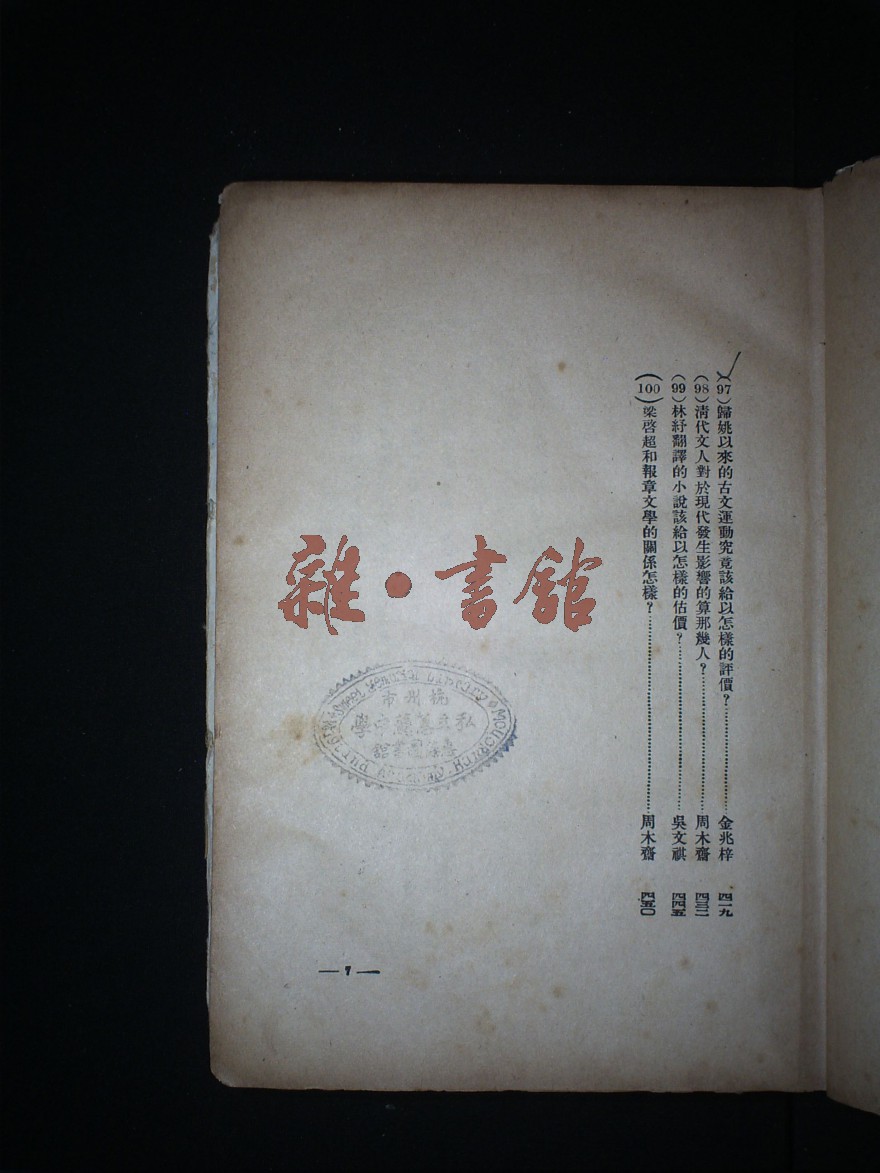 (97)歸姚以來的古文運動究竟該給以怎樣的評價？……………金兆梓 四一九
(98)清代文人對於現代發生影響的算那幾人？……………周木齋 四三二
(99)林紓翻譯的小說該給以怎樣的估價？……………吳文祺 四四五
(100)梁啓超和報章文學的關係怎樣？……………周木齋 四五〇
雜·書館
杭州市
私立蕙蘭中學
圖書館
Sweet Memorial Library
Wayland Academy Hangchow
— 7 —